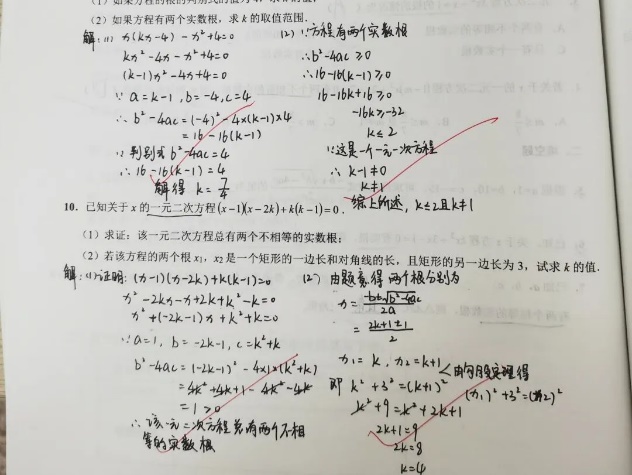 (2) 如果方程有两个实数根，求 k 的取值范围.
解：(1) x(kx-4) - x²+4=0
kx²-4x-x²+4=0
(k-1)x²-4x+4=0
∵ a=k-1，b=-4，c=4
∴ b²-4ac=(-4)²-4×(k-1)×4
=16-16(k-1)
∵ 判别式 b²-4ac=4
∴ 16-16(k-1)=4
解得 k=7/4
(2) ∵方程有两个实数根
∴ b²-4ac≥0
∴16-16(k-1)≥0
16-16k+16≥0
-16k≥-32
k≤2
∵这是一个一元二次方程
∴ k-1≠0
k≠1
综上所述，k≤2且k≠1
10. 已知关于 x 的一元二次方程(x-1)(x-2k)+k(k-1)=0.
(1) 求证：该一元二次方程总有两个不相等的实数根；
(2) 若该方程的两个根 x₁，x₂是一个矩形的一边长和对角线的长，且矩形的另一边长为 3，试求 k 的值.
解：(1)证明：(x-1)(x-2k)+k(k-1)=0
x²-2kx-x+2k+k²-k=0
x²+(-2k-1)x+k²+k=0
∵a=1，b=-2k-1，c=k²+k
b²-4ac=(-2k-1)²-4×1×(k²+k)
=4k²+4k+1-4k²-4k
=1>0
∴该一元二次方程总有两个不相
等的实数根
(2) 由题意得两个根分别为
x=(-b±√b²-4ac)/2a
=(2k+1±1)/2
x₁=k，x₂=k+1
由勾股定理得
(x₁)²+3²=(x₂)²
即 k²+3²=(k+1)²
k²+9=k²+2k+1
2k+1=9
2k=8
k=4